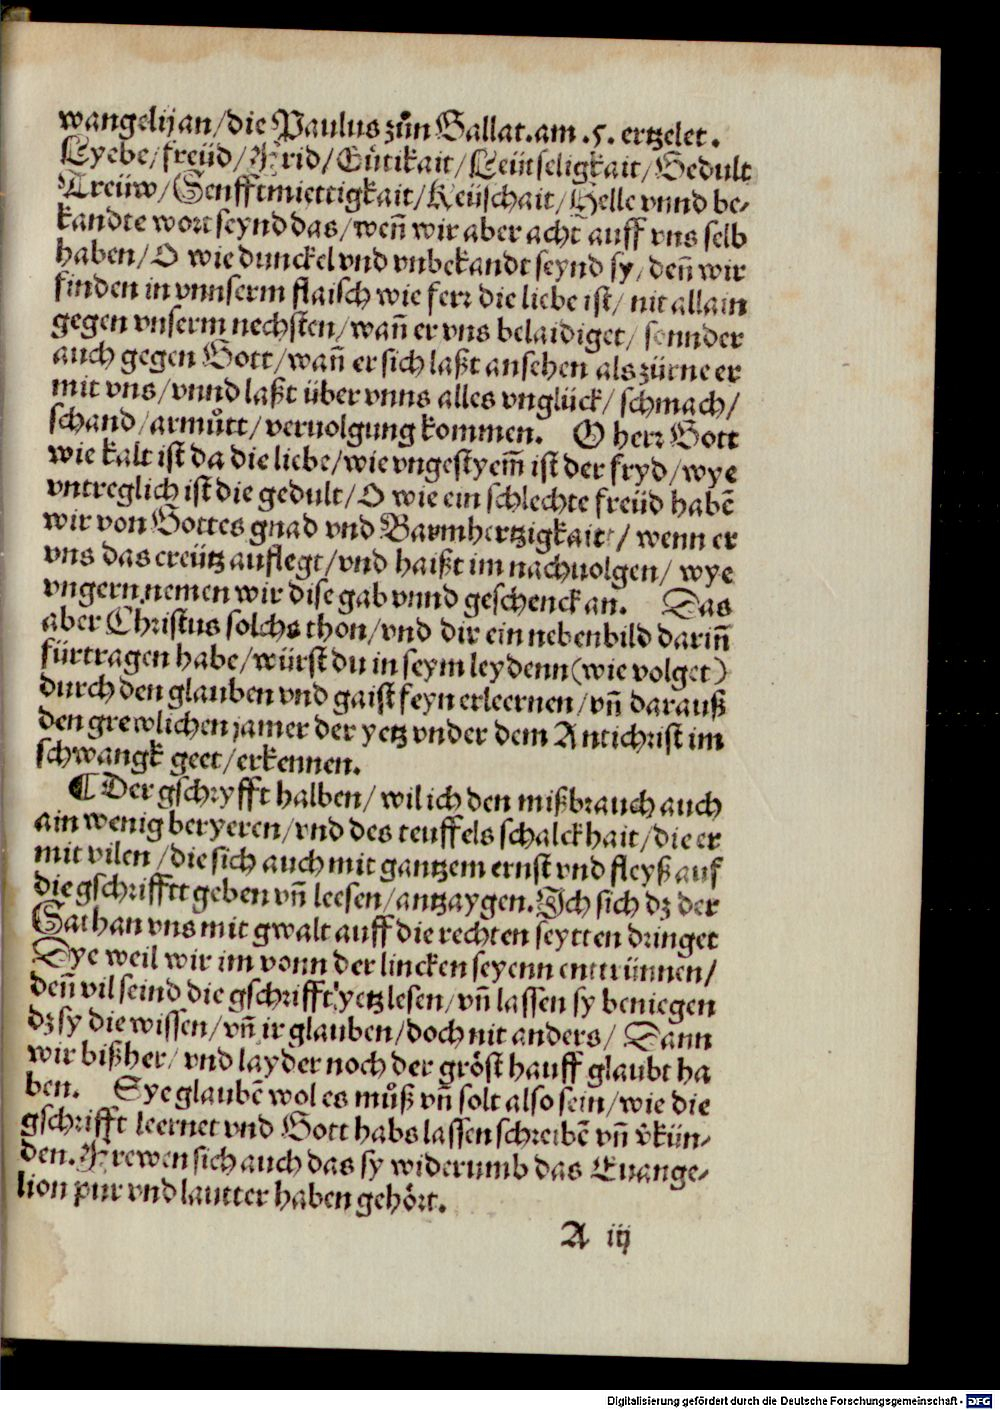 wangelijan/die Paulus zůn Gallat.am .5. ertzelet.
Lyebe/freüd/Frid/Gütikait/Leütseligkait/Gedult
Treüw/Senfftmiettigkait/Keüschait/Helle vnnd be-
kandte wort seynd das/weñ wir aber acht auff vns selb
haben/O wie dunckel vnd vnbekandt seynd sy/deñ wir
finden in vnnserm flaisch wie ferr die liebe ist/nit allain
gegen vnserm nechsten/wañ er vns belaidiget/sonnder
auch gegen Gott/wañ er sich laßt ansehen als zürne er
mit vns/vnnd laßt über vnns alles vnglück/schmach/
schand/armůtt/veruolgung kommen. O herr Gott
wie kalt ist da die liebe/wie vngestyem̃ ist der fryd/wye
vntreglich ist die gedult/O wie ein schlechte freüd habē
wir von Gottes gnad vnd Barmhertzigkait/wenn er
vns das creütz auflegt/vnd haißt im nachuolgen/wye
vngern nemen wir dise gab vnnd geschenck an. Das
aber Christus solchs thon/vnd dir ein nebenbild dariñ
fürtragen habe/würst du in seym leydenn(wie volget)
durch den glauben vnd gaist feyn erleernen/vñ darauß
den grewlichen jamer der yetz vnder dem Antichrist im
schwangk geet/erkennen.
¶ Der gschryfft halben/wil ich den mißbrauch auch
ain wenig beryeren/vnd des teuffels schalckhait/die er
mit vilen/die sich auch mit gantzem ernst vnd fleyß auf
die gschrifftt geben vñ leesen/antzaygen.Ich sich dz der
Sathan vns mit gwalt auff die rechten seytten dringet
Dye weil wir im vonn der lincken seyenn enttrünnen/
deñ vil seind die gschrifft yetz lesen/vñ lassen sy beniegen
dz sy die wissen/vñ ir glauben/doch nit anders/Dann
wir bißher/vnd layder noch der gröst hauff glaubt ha
ben. Sye glaubē wol es můß vñ solt also sein/wie die
gschrifft leernet vnd Gott habs lassen schreibē vñ v̂kün-
den.Frewen sich auch das sy widerumb das Euange-
lion pur vnd lautter haben gehört.
A iij
Digitalisierung gefördert durch die Deutsche Forschungsgemeinschaft - DFG